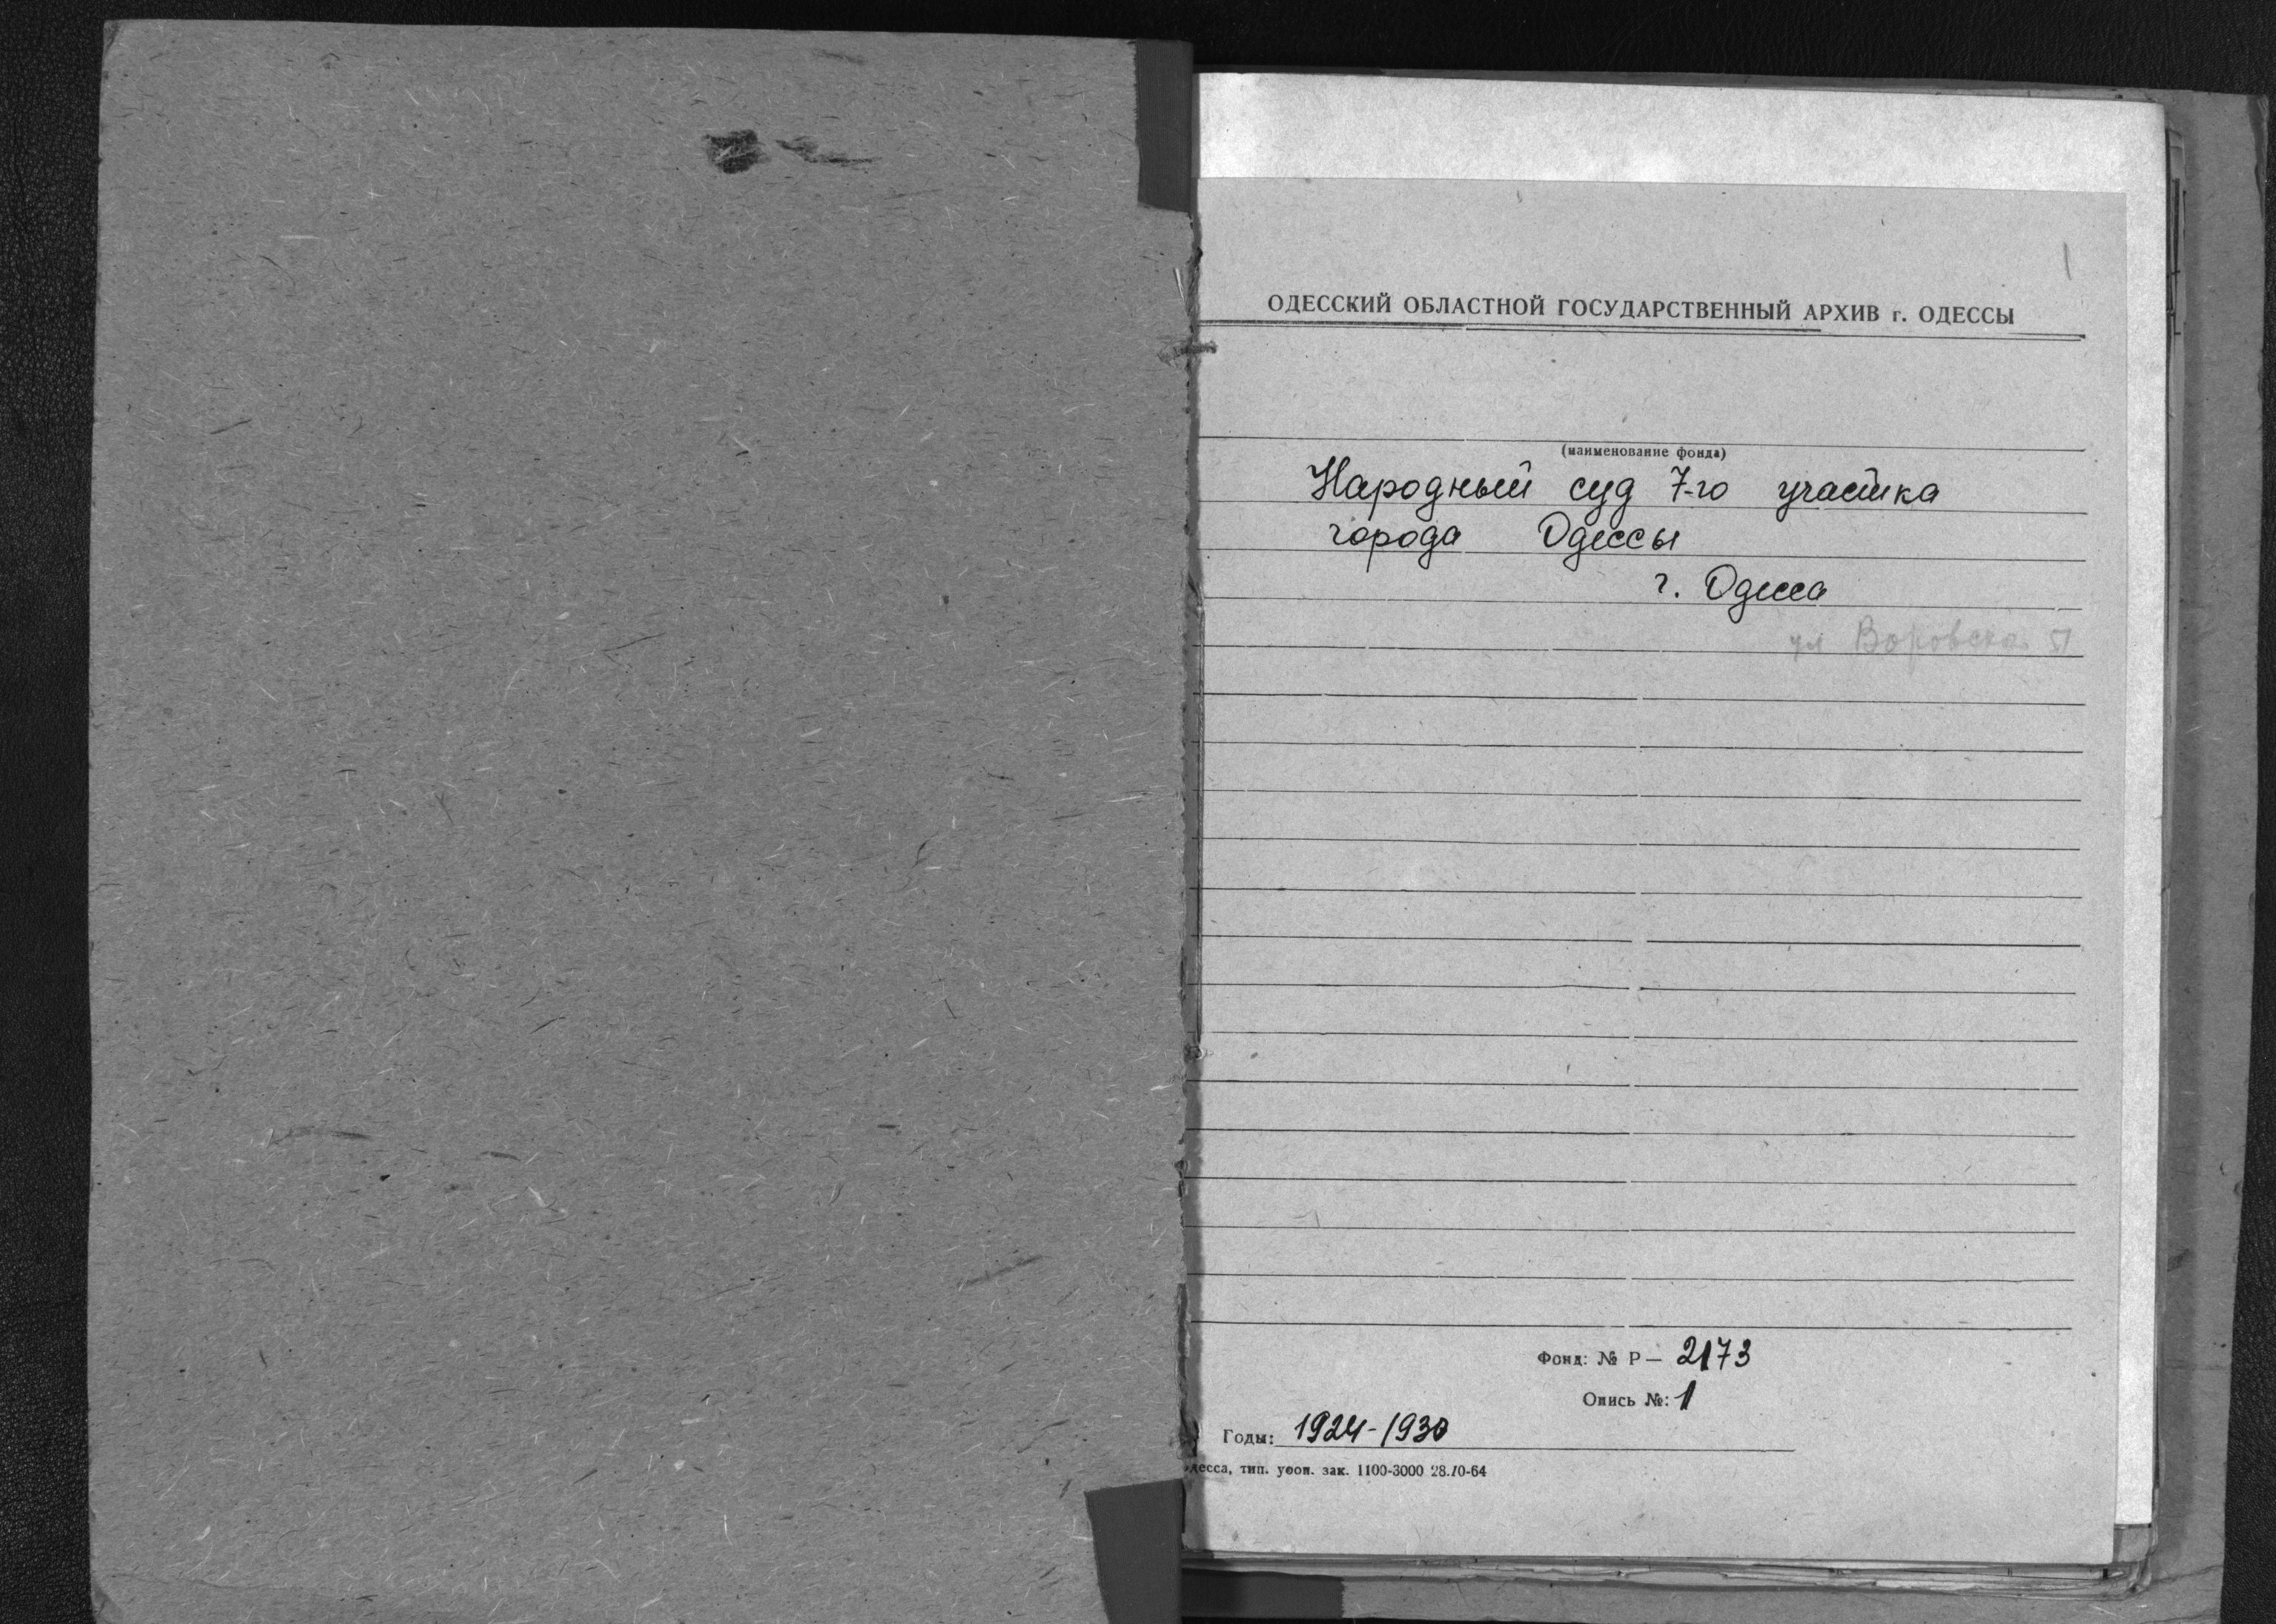 1
ОДЕССКИЙ ОБЛАСТНОЙ ГОСУДАРСТВЕННЫЙ АРХИВ г. ОДЕССЫ
(наименование фонда)
Народный суд 7-го участка
города Одессы
г. Одесса
ул Воровска
Фонд: № Р— 2173
Опись №: 1
Годы: 1924-1930
десса, тип. уооп. зак. 1100-3000 28.10-64